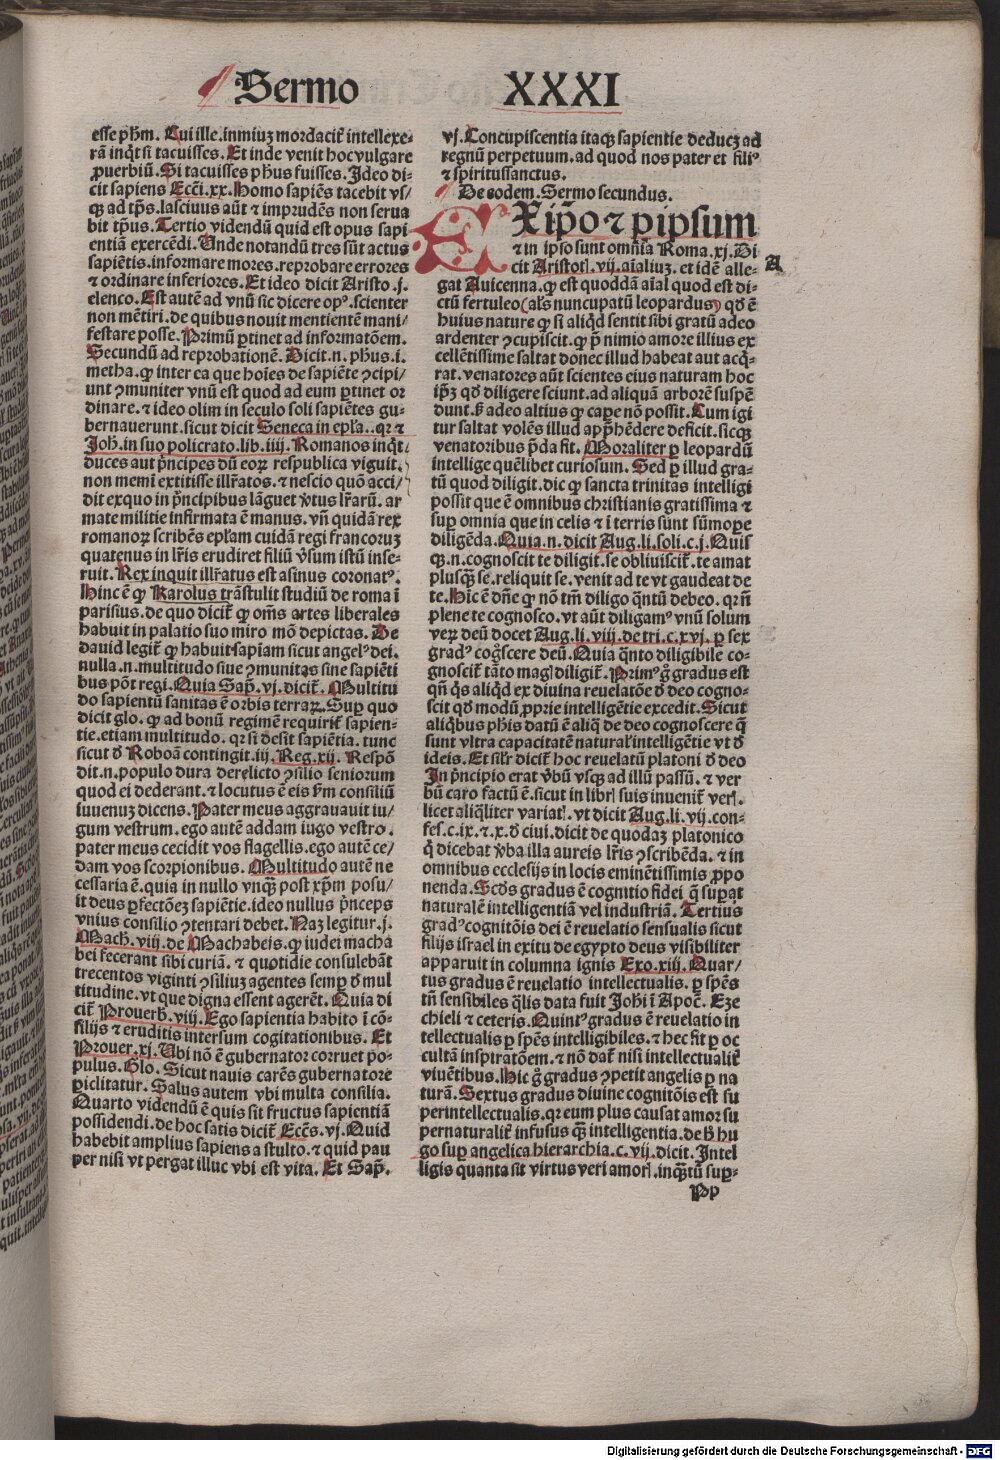 Sermo XXXI
esse pħm. Cui ille. inmiuꝫ mordacit̃ intellexe-
rã inq̃t si tacuisses. Et inde venit hoc vulgare
ꝓuerbiũ. Si tacuisses pħus fuisses. Ideo di-
cit sapiens Ecc̃i.xx. Homo sapiẽs tacebit vs/
qꝫ ad tp̃s. lasciuus aũt ⁊ imprudẽs non serua
bit tp̃us. Tertio videndũ quid est opus sapi
entiã exercẽdi. Unde notandũ tres sũt actus
sapiẽtis. informare mores. reprobare errores
⁊ ordinare inferiores. Et ideo dicit Aristo .j.
elenco. Est autẽ ad vnũ sic dicere opꝰ. scienter
non mẽtiri. de quibus nouit mentientẽ mani/
festare posse. Primũ ꝑtinet ad informatõem.
Secundũ ad reprobationẽ. Dicit.n.pħus.i.
metha. ꝙ inter ea que hoĩes de sapiẽte ꝯcipi/
unt ⁊muniter vnũ est quod ad eum ꝑtinet or
dinare. ⁊ ideo olim in seculo soli sapiẽtes gu-
bernauerunt. sicut dicit Seneca in epl̃a..qꝛ ⁊
Joħ. in suo policrato.lib.iiij. Romanos inq̃t
duces aut p̃ncipes dũ eoꝝ respublica viguit.
non memĩ extitisse illr̃atos. ⁊ nescio quõ acci/
dit exquo in p̃ncipibus lãguet ṽtus lr̃arũ. ar
mate militie infirmata ẽ manus. vñ quidã rex
romanoꝝ scribẽs epl̃am cuidã regi francoruꝫ
quatenus in lr̃is erudiret filiũ ṽsum istũ inse-
ruit. Rex inquit illr̃atus est asinus coronatꝰ.
Hinc ẽ ꝙ Karolus trãstulit studiũ de roma ĩ
parisius. de quo dicit̃ ꝙ om̃s artes liberales
habuit in palatio suo miro mõ depictas. De
dauid legit̃ ꝙ habuit sapiam sicut angelꝰ dei.
nulla.n.multitudo siue ⁊munitas sine sapiẽti
bus põt regi. Quia Sap̃.vj.dicit̃. Multitu
do sapientũ sanitas ẽ orbis terraꝝ. Suꝑ quo
dicit glo. ꝙ ad bonũ regimẽ requirit̃ sapien-
tie. etiam multitudo. qꝛ si desit sapiẽtia. tunc
sicut ð Roboã contingit.iij.Reg.xij. Respõ
dit.n.populo dura derelicto ꝯsilio seniorum
quod ei dederant. ⁊ locutus ẽ eis ẜm consiliũ
iuuenuꝫ dicens. Pater meus aggrauauit iu/
gum vestrum. ego autẽ addam iugo vestro.
pater meus cecidit vos flagellis. ego autẽ ce/
dam vos scorpionibus. Multitudo autẽ ne
cessaria ẽ. quia in nullo vnqꝫ post xp̃m posu/
it deus ꝑfectõeꝫ sapiẽtie. ideo nullus p̃nceps
vnius consilio ꝯtentari debet. Naꝫ legitur.j.
Macħ.viij.de Machabeis. ꝙ iudei macha
bei fecerant sibi curiã. ⁊ quotidie consulebãt
trecentos viginti ꝯsiliuꝫ agentes semꝑ ð mul
titudine. vt que digna essent agerẽt. Quia di
cit̃ Prouerƀ.viij. Ego sapientia habito ĩ cõ-
silijs ⁊ eruditis intersum cogitationibus. Et
Prouer.xj. Ubi nõ ẽ gubernator corruet po-
pulus. Glo. Sicut nauis carẽs gubernatore
ꝑiclitatur. Salus autem vbi multa consilia.
Quarto videndũ ẽ quis sit fructus sapientiã
possidendi. de hoc satis dicit̃ Ecc̃s.vj. Quid
habebit amplius sapiens a stulto. ⁊ quid pau
per nisi vt pergat illuc vbi est vita. Et Sap̃.
vj. Concupiscentia itaqꝫ sapientie deducꝫ ad
regnũ perpetuum. ad quod nos pater et filiꝰ
⁊ spiritussanctus.
De eodem. Sermo secundus.
EX ip̃o ⁊ ꝑ ipsum
⁊ in ipso sunt om̃ia Roma.xj. Di
A
cit Aristotl.vij.aĩaliuꝫ. et idẽ alle-
gat Auicenna. ꝙ est quoddã aĩal quod est di-
ctũ fertuleo (al̃s nuncupatũ leopardus) qð ẽ
huius nature ꝙ si aliqd̃ sentit sibi gratũ adeo
ardenter ꝯcupiscit. ꝙ p̃ nimio amore illius ex
cellẽtissime saltat donec illud habeat aut acq̃-
rat. venatores aũt scientes eius naturam hoc
ip̃ꝫ qð diligere sciunt. ad aliquã arborẽ suspẽ
dunt. ẜ adeo altius ꝙ caꝑe nõ possit. Cum igi
tur saltat volẽs illud app̃hẽdere deficit. sicqꝫ
venatoribus p̃da fit. Moraliter ꝑ leopardũ
intellige quẽlibet curiosum. Sed ꝑ illud gra-
tũ quod diligit. dic ꝙ sancta trinitas intelligi
possit que ẽ omnibus christianis gratissima ⁊
suꝑ omnia que in celis ⁊ ĩ terris sunt sũmopere
diligẽda. Quia.n.dicit Aug.li.soli.c.j. Quis
qꝫ.n.cognoscit te diligit. se obliuiscit̃. te amat
plusqꝫ se. reliquit se. venit ad te vt gaudeat de
te. Hic ẽ dñe ꝙ nõ tm̃ diligo q̃ntũ debeo. qꝛ ñ
plene te cognosco. vt aũt diligamꝰ vnũ solum
veꝝ deũ docet Aug.li.viij.de tri.c.xvj. ꝑ sex
gradꝰ cog̃scere deũ. Quia q̃nto diligibile co-
gnoscit̃ tãto magꝭ diligit̃. Primꝰ g̃ gradus est
qñ q̃s aliqd̃ ex diuina reuelatõe ð deo cogno-
scit qð modũ ꝓprie intelligẽtie excedit. Sicut
aliq̃bus pħis datũ ẽ aliq̃ de deo cognoscere q̃
sunt vltra capacitatẽ naturaꝭ intelligẽtie vt ð
ideis. Et sil̃r dicit̃ hoc reuelatũ platoni ð deo
In p̃ncipio erat ṽbũ vsqꝫ ad illũ passũ. ⁊ ver
bũ caro factũ ẽ. sicut in librꝭ suis inuenit̃ verꝭ.
licet aliq̃liter variatꝭ. vt dicit Aug.li.vij.con-
fes.c.ix.⁊.x.ð ciui.dicit de quodaꝫ platonico
q̃ dicebat ṽba illa aureis lr̃is ꝯscribẽda. ⁊ in
omnibus ecclesijs in locis eminẽtissimis ꝓpo
nenda. Scðs gradus ẽ cognitio fidei q̃ suꝑat
naturalẽ intelligentiã vel industriã. Tertius
gradꝰ cognitõis dei ẽ reuelatio sensualis sicut
filijs israel in exitu de egypto deus visibiliter
apparuit in columna ignis Exo.xiij. Quar/
tus gradus ẽ reuelatio intellectualis. ꝑ spẽs
tñ sensibiles q̃lis data fuit Joħi ĩ Apoc̃. Eze
chieli ⁊ ceteris. Quintꝰ gradus ẽ reuelatio in
tellectualis ꝑ spẽs intelligibiles. ⁊ hec fit ꝑ oc
cultã inspiratõem. ⁊ nõ dat̃ nisi intellectualit̃
viuẽtibus. Hic g̃ gradus ꝯpetit angelis ꝑ na
turã. Sextus gradus diuine cognitõis est su
perintellectualis. qꝛ eum plus causat amor su
pernaturalit̃ infusus qꝫ intelligentia. de ƀ hu
go suꝑ angelica hierarchia.c.vij.dicit. Intel
ligis quanta sit virtus veri amorꝭ. inq̃ꝫtũ suꝑ-
Pp
Digitalisierung gefördert durch die Deutsche Forschungsgemeinschaft - DFG